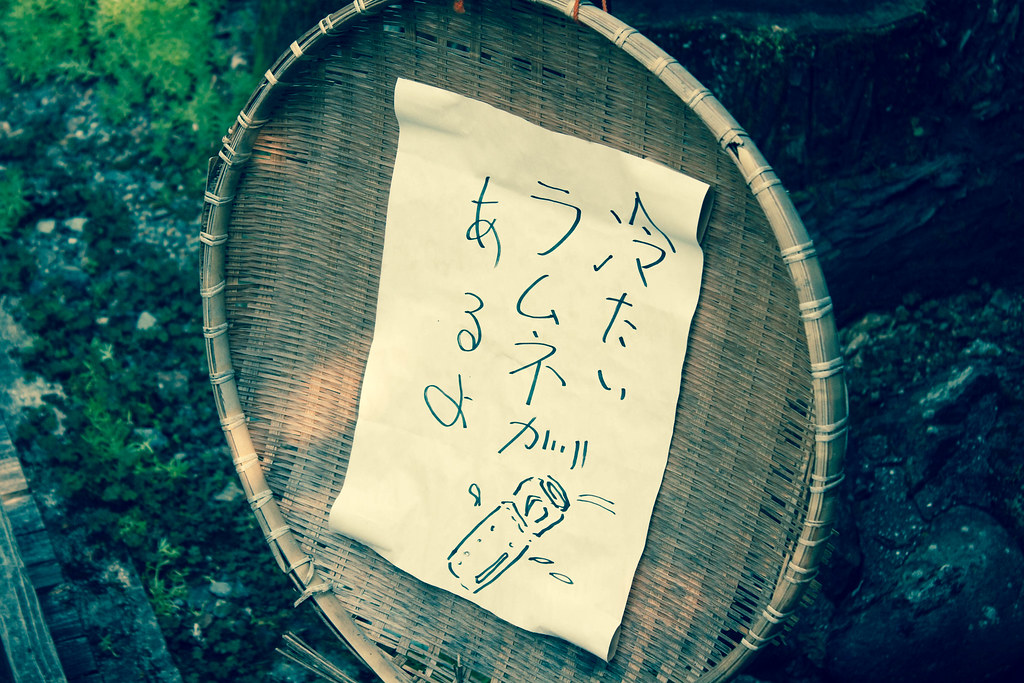 冷たい
ラムネが
あるよ